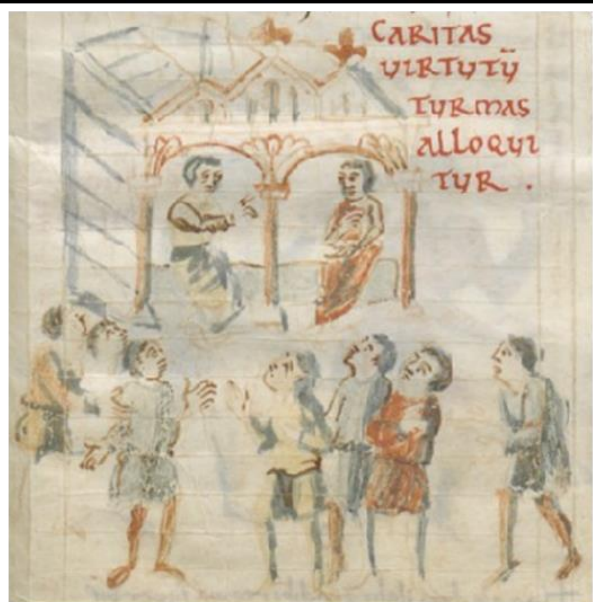 CARITAS
VIRTVTV̄
TVRMAS
ALLOQVI
TVR .